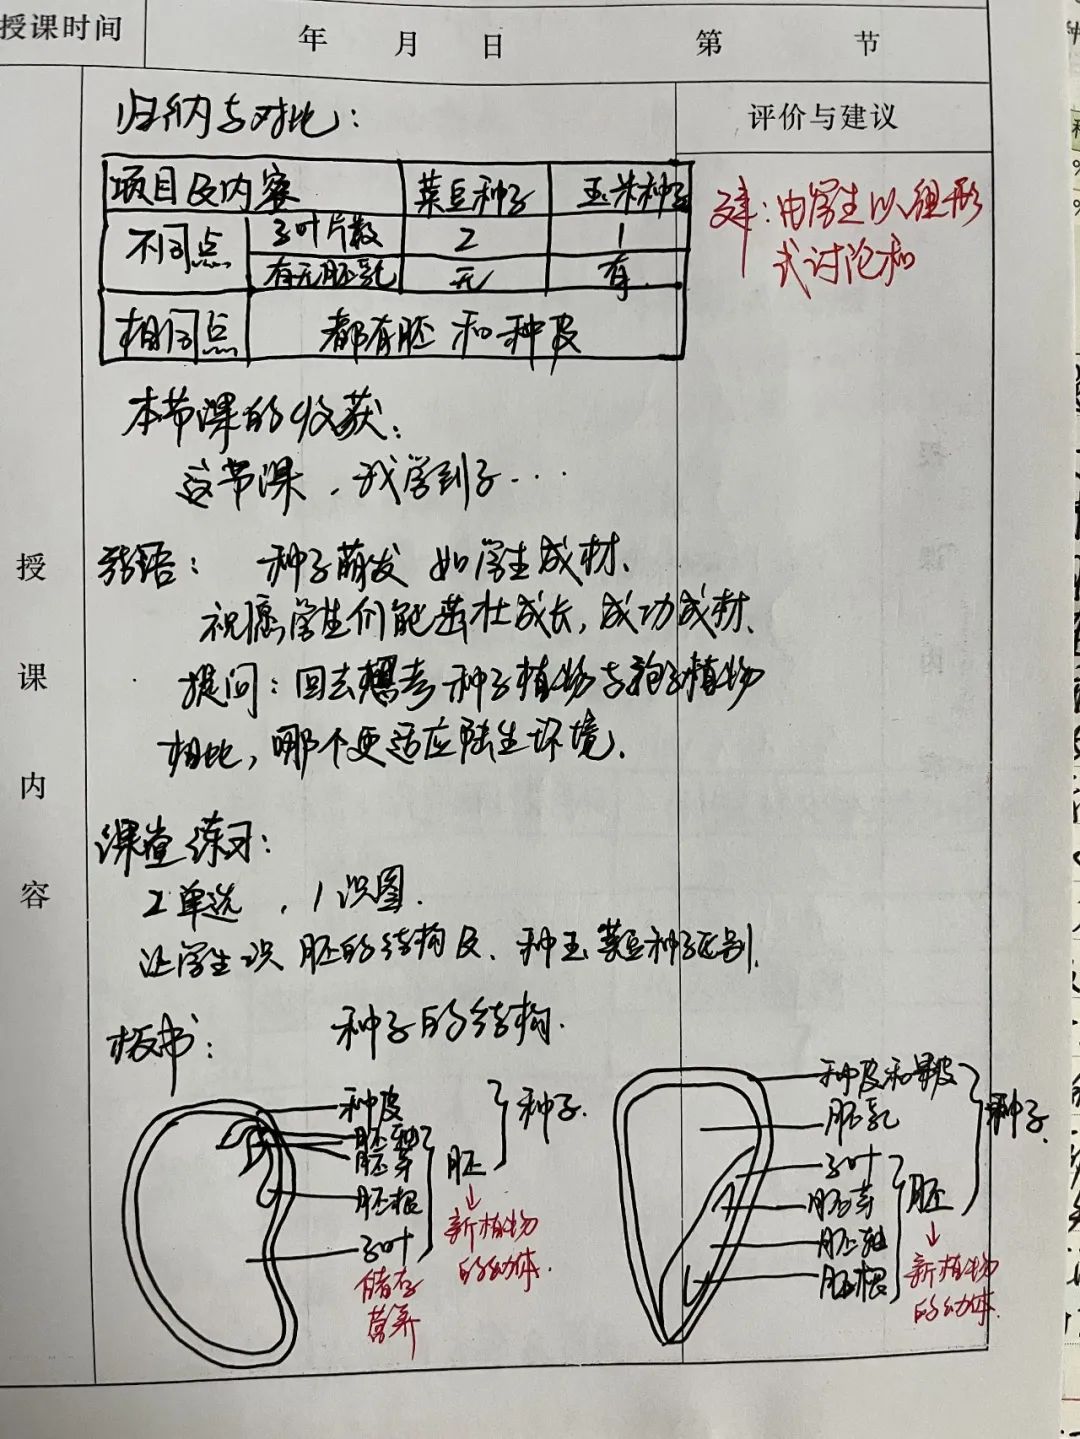 授课时间
年 月 日 第 节
评价与建议
归纳与对比：
项目及内容 菜豆种子 玉米种子
不同点 子叶片数 2 1
有无胚乳 无 有
相同点 都有胚和种皮
建：由学生以组形
式讨论和
本节课的收获：
这节课，我学到了…
结语： 种子萌发 如学生成材、
祝愿学生们能茁壮成长，成功成材、
提问：回去想考种子植物与孢子植物
相比，哪个更适应陆生环境.
授课内容
课堂练习：
2单选 ，1识图.
让学生识 胚的结构及、种玉菜豆种子区别.
板书： 种子的结构.
种皮
胚轴
胚芽
胚根
子叶
储存
营养
胚
种子.
新植物
的幼体.
种皮和果皮
胚乳
子叶
胚芽
胚轴
胚根
胚
种子.
新植物
的幼体.